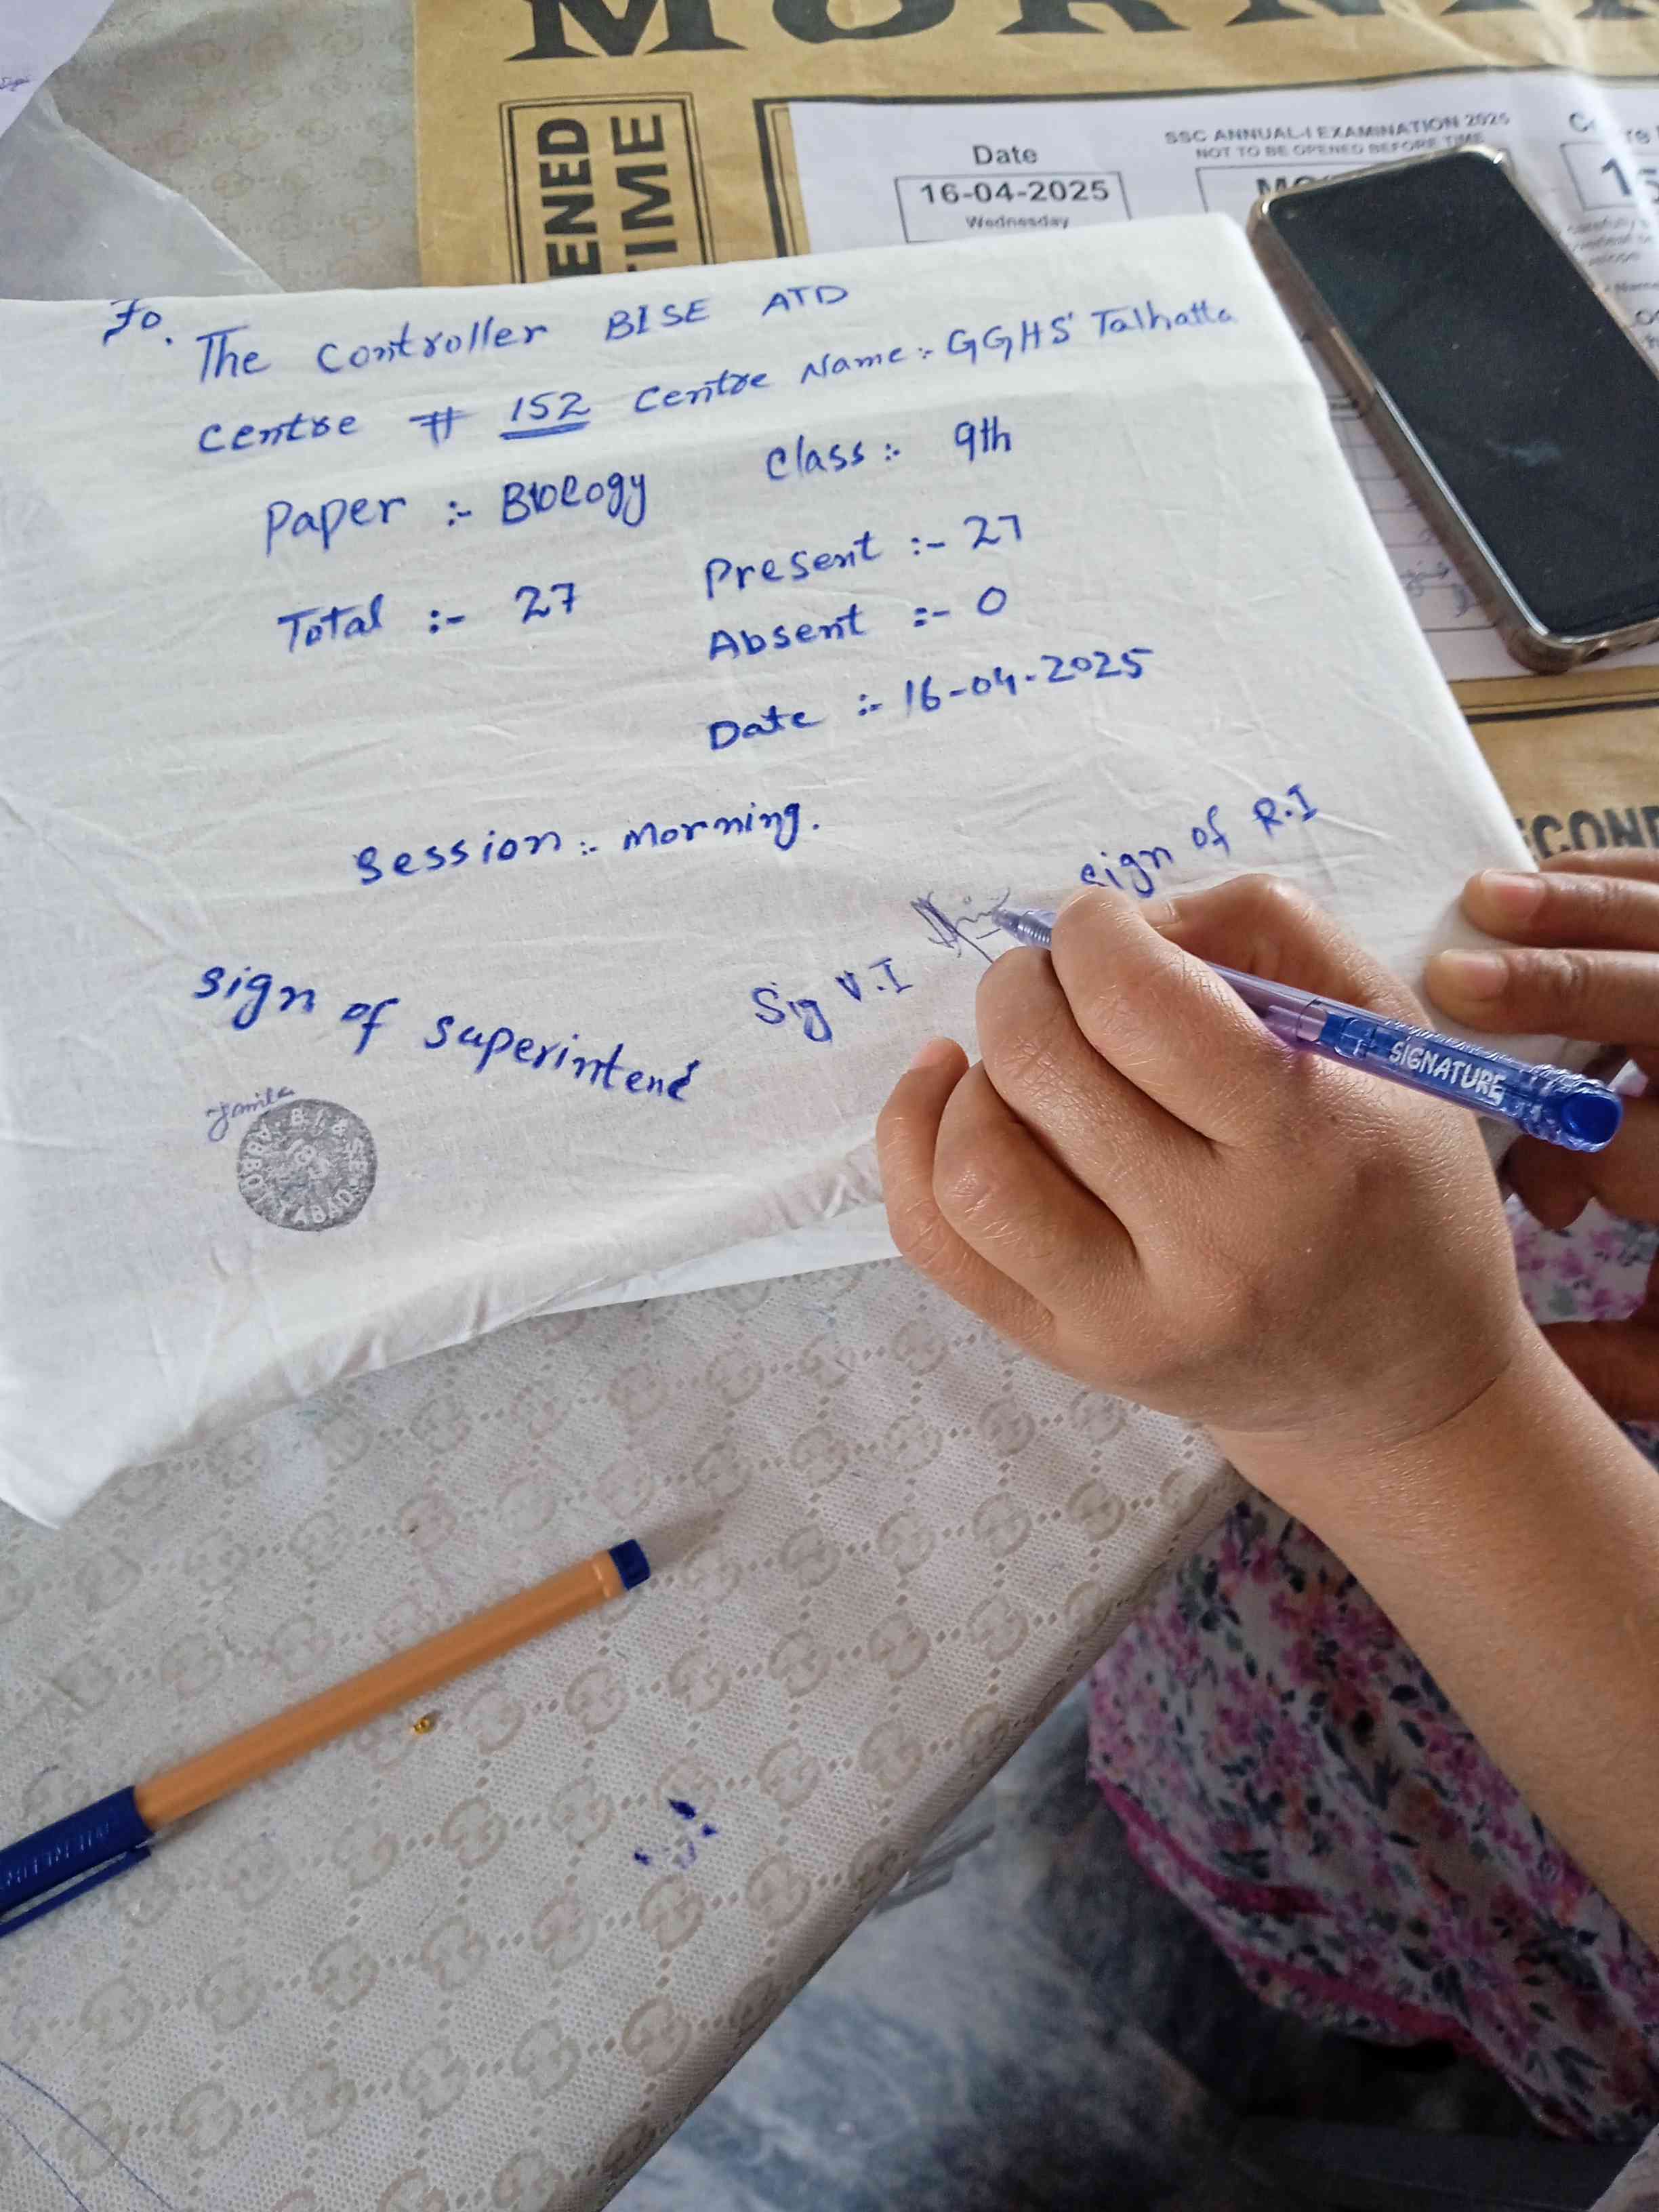 MORNIN
ENED
TIME
Date
16-04-2025
Wednesday
SSC ANNUAL-I EXAMINATION 2025
NOT TO BE OPENED BEFORE TIME
To.
The Controller BISE ATD
Centre # 152 Centre Name :- GGHS Talhatta
Paper :- Biology Class :- 9th
Total :- 27 Present :- 27
Absent :- 0
Date :- 16-04-2025
Session :- Morning.
sign of superintend
Sig V.I
sign of R.I
Jamila
SIGNATURE
ECOND